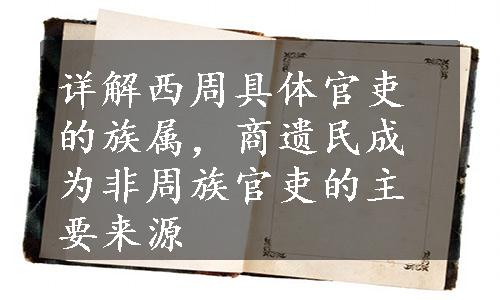 详解西周具体官吏
的族属，商遗民成
为非周族官吏的主
要来源